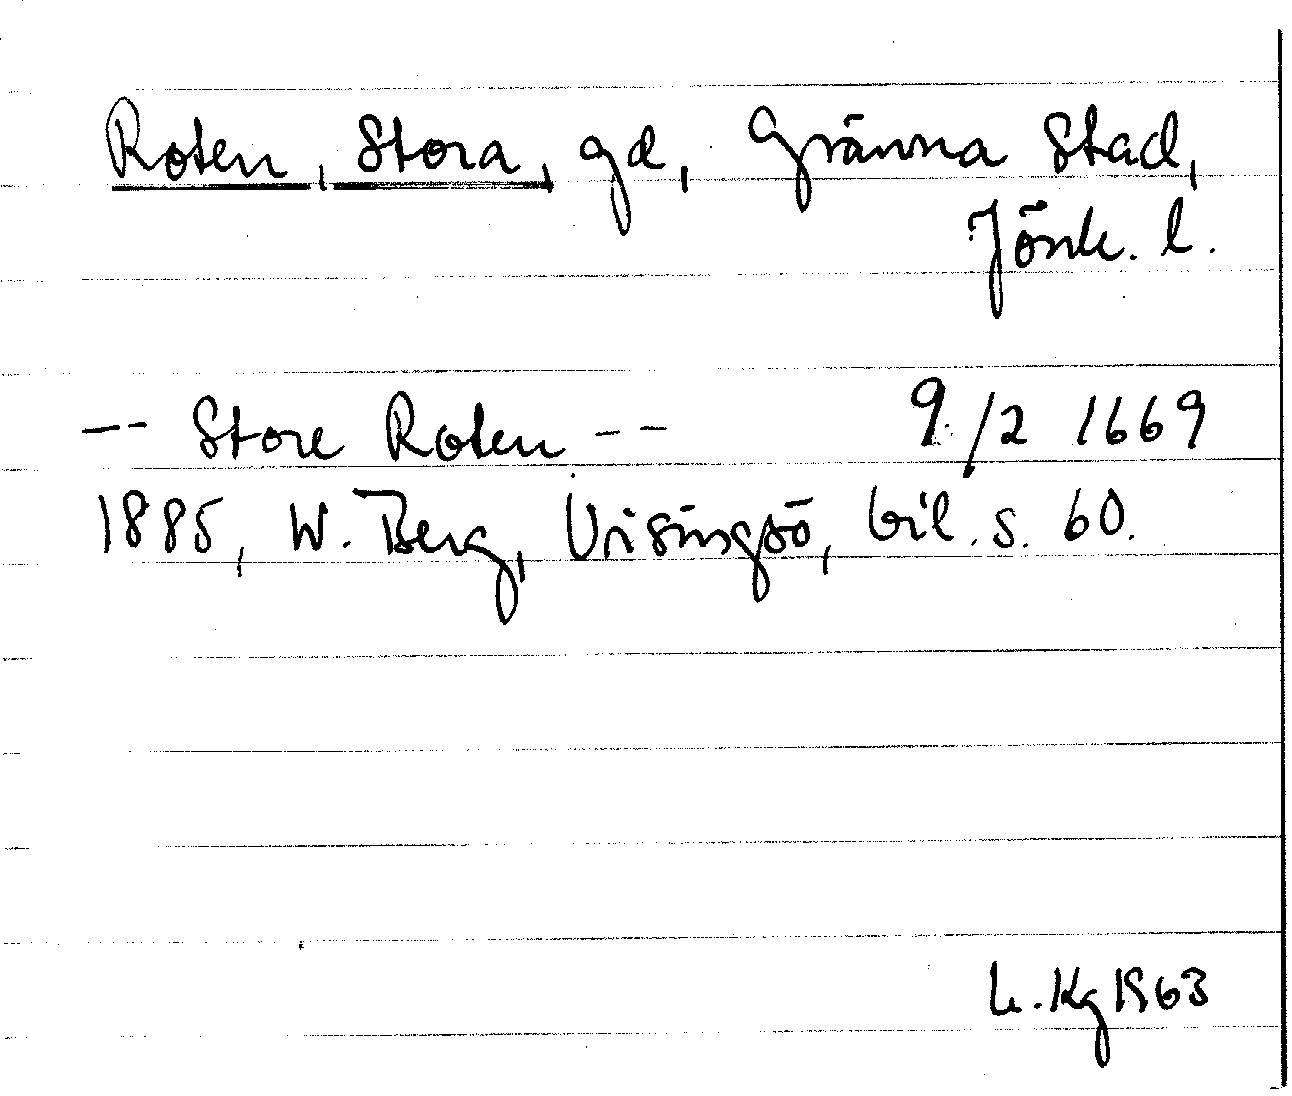 Roten, Stora, gd, Gränna Stad,
Jönk. l.
-- Store Roten -- 9/2 1669
1885, W. Berg, Visingsö, bil. s. 60.
L. Kg 1963